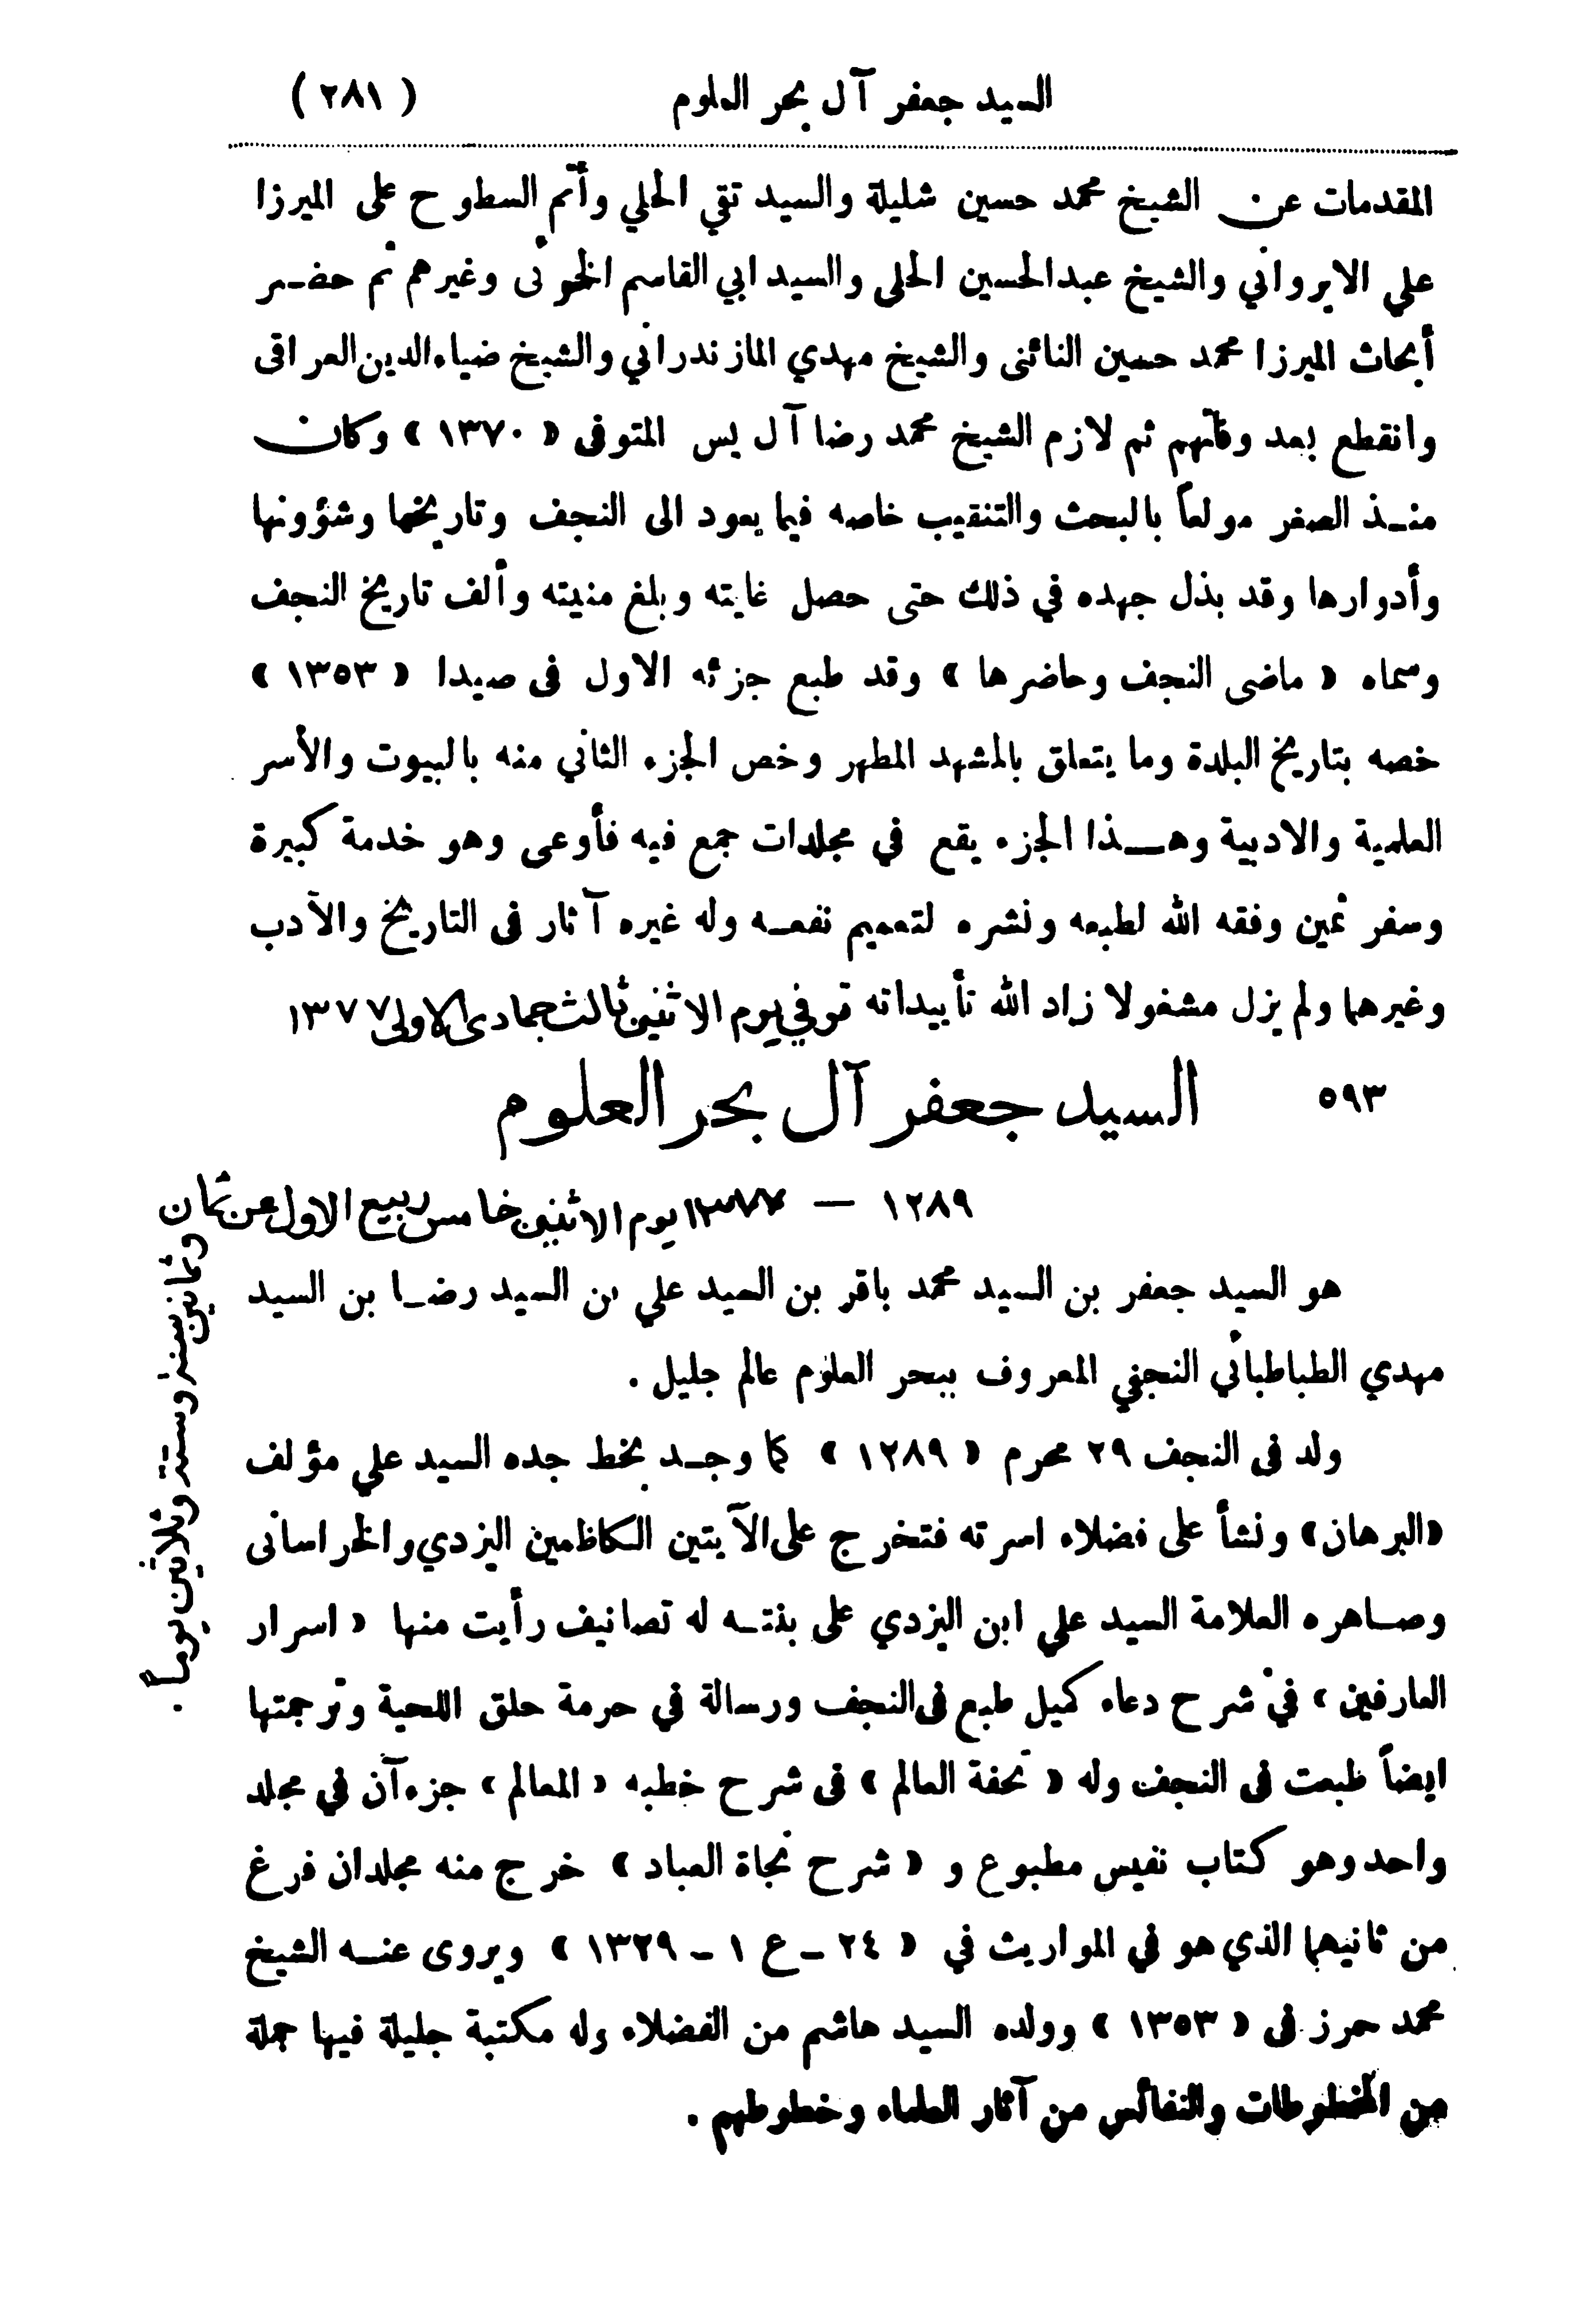 السيد جعفر آل بحر العلوم ( ٢٨١ )
المقدمات عن الشيخ محمد حسين شليلة والسيد تقي الحلي وأتم السطوح على الميرزا
علي الايرواني والشيخ عبدالحسين الحلي والسيد ابي القاسم الخوئى وغيرهم ثم حضـر
أبحاث الميرزا محمد حسين النائنى والشيخ مهدي المازندراني والشيخ ضياء الدين العراقى
وانقطع بعد وفاتهم ثم لازم الشيخ محمد رضا آل يس المتوفى « ١٣٧٠ » وكان
منـذ الصغر مولعاً بالبحث والتنقيب خاصه فيما يعود الى النجف وتاريخها وشؤونها
وأدوارها وقد بذل جهده في ذلك حتى حصل غايته وبلغ منيته وألف تاريخ النجف
وسماه « ماضى النجف وحاضرها » وقد طبع جزئه الاول فى صيدا « ١٣٥٣ »
خصه بتاريخ البلدة وما يتعلق بالمشهد المطهر وخص الجزء الثاني منه بالبيوت والأسر
العلمية والادبية وهــذا الجزء يقع في مجلدات جمع فيه فأوعى وهو خدمة كبيرة
وسفر ثمين وفقه الله لطبعه ونشره لتعميم نفعـه وله غيره آثار فى التاريخ والأدب
وغيرهما ولم يزل مشغولا زاد الله تأييداته توفي يوم الاثنين ثالث جمادى الاولى ١٣٧٧
٥٩٣ السيد جعفر آل بحر العلوم
١٢٨٩ — ١٣٧٧ يوم الاثنين خامس ربيع الاول عن ثمان
وثمانين سنة وستة وثلاثين يوماً .
هو السيد جعفر بن السيد محمد باقر بن السيد علي بن السيد رضـا بن السيد
مهدي الطباطبائي النجفي المعروف ببحر العلوم عالم جليل .
ولد فى النجف ٢٩ محرم « ١٢٨٩ » كما وجـد بخط جده السيد علي مؤلف
«البرهان» ونشأ على فضلاء اسرته فتخرج على الآيتين الكاظمين اليزدي والخراسانى
وصـاهره العلامة السيد علي ابن اليزدي على بنتـه له تصانيف رأيت منها « اسرار
العارفين » في شرح دعاء كميل طبع فى النجف ورسالة في حرمة حلق اللحية وترجمتها
ايضاً طبعت فى النجف وله « تحفة العالم » فى شرح خطبه « المعالم » جزءآن في مجلد
واحد وهو كتاب نفيس مطبوع و « شرح نجاة العباد » خرج منه مجلدان فرغ
من ثانيهما الذي هو في المواريث في « ٢٤ ـ ع ١ ـ ١٣٢٩ » ويروى عنـه الشيخ
محمد حرز فى « ١٣٥٣ » وولده السيد هاشم من الفضلاء وله مكتبة جليلة فيها جملة
من المخطوطات والنفائس من آثار العلماء وخطوطهم .